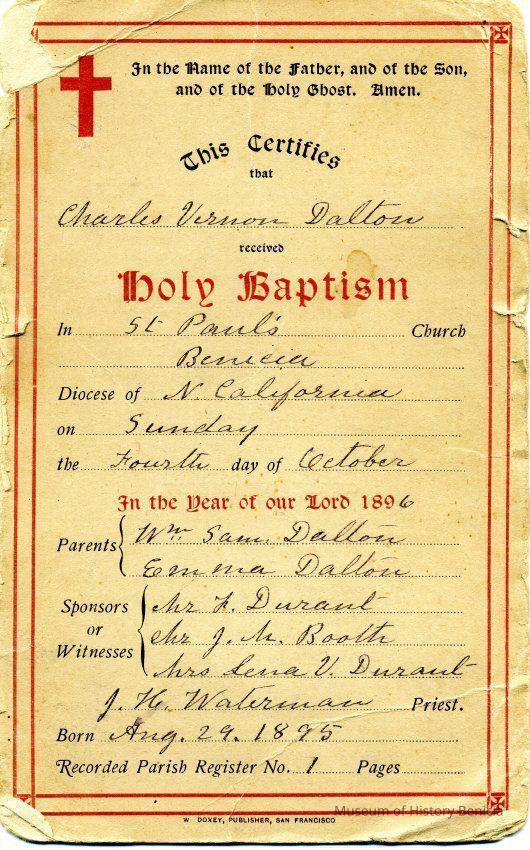 In the Name of the Father, and of the Son,
and of the Holy Ghost. Amen.
This Certifies
that
Charles Vernon Dalton
received
Holy Baptism
In St Paul's Church
Benicia
Diocese of N California
on Sunday
the Fourth day of October
In the Year of our Lord 1896
Parents Wm Sam Dalton
Emma Dalton
Sponsors or Witnesses Mr F. Durant
Mr J. M. Booth
Mrs Lena V. Durant
J. H. Waterman Priest.
Born Aug. 29. 1895
Recorded Parish Register No. 1 Pages
Museum of History Benicia
W DOXEY, PUBLISHER, SAN FRANCISCO